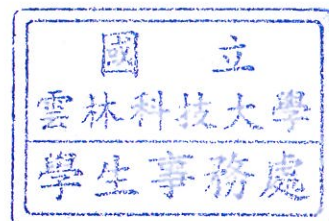 國立
雲林科技大學
學生事務處